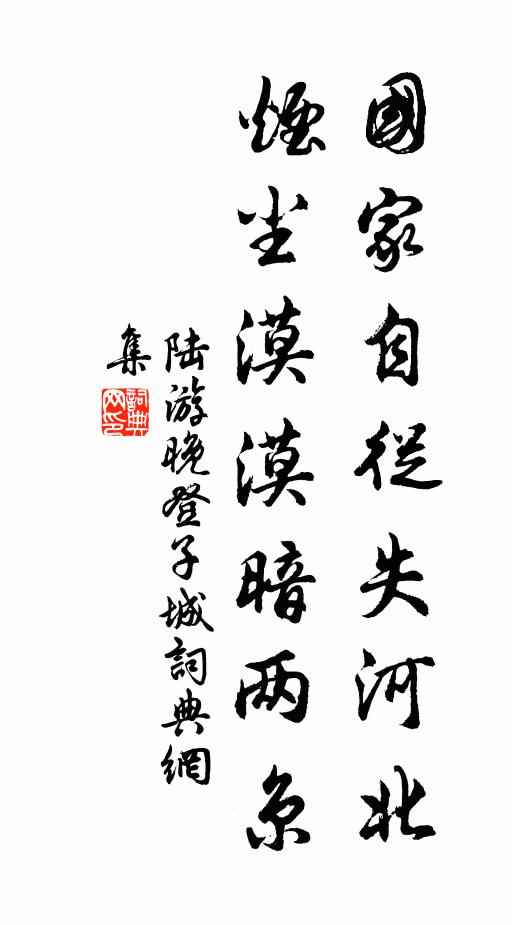 國家自從失河北
煙塵漠漠暗两京
陆游晚登子城詞典網
集
詞典网印